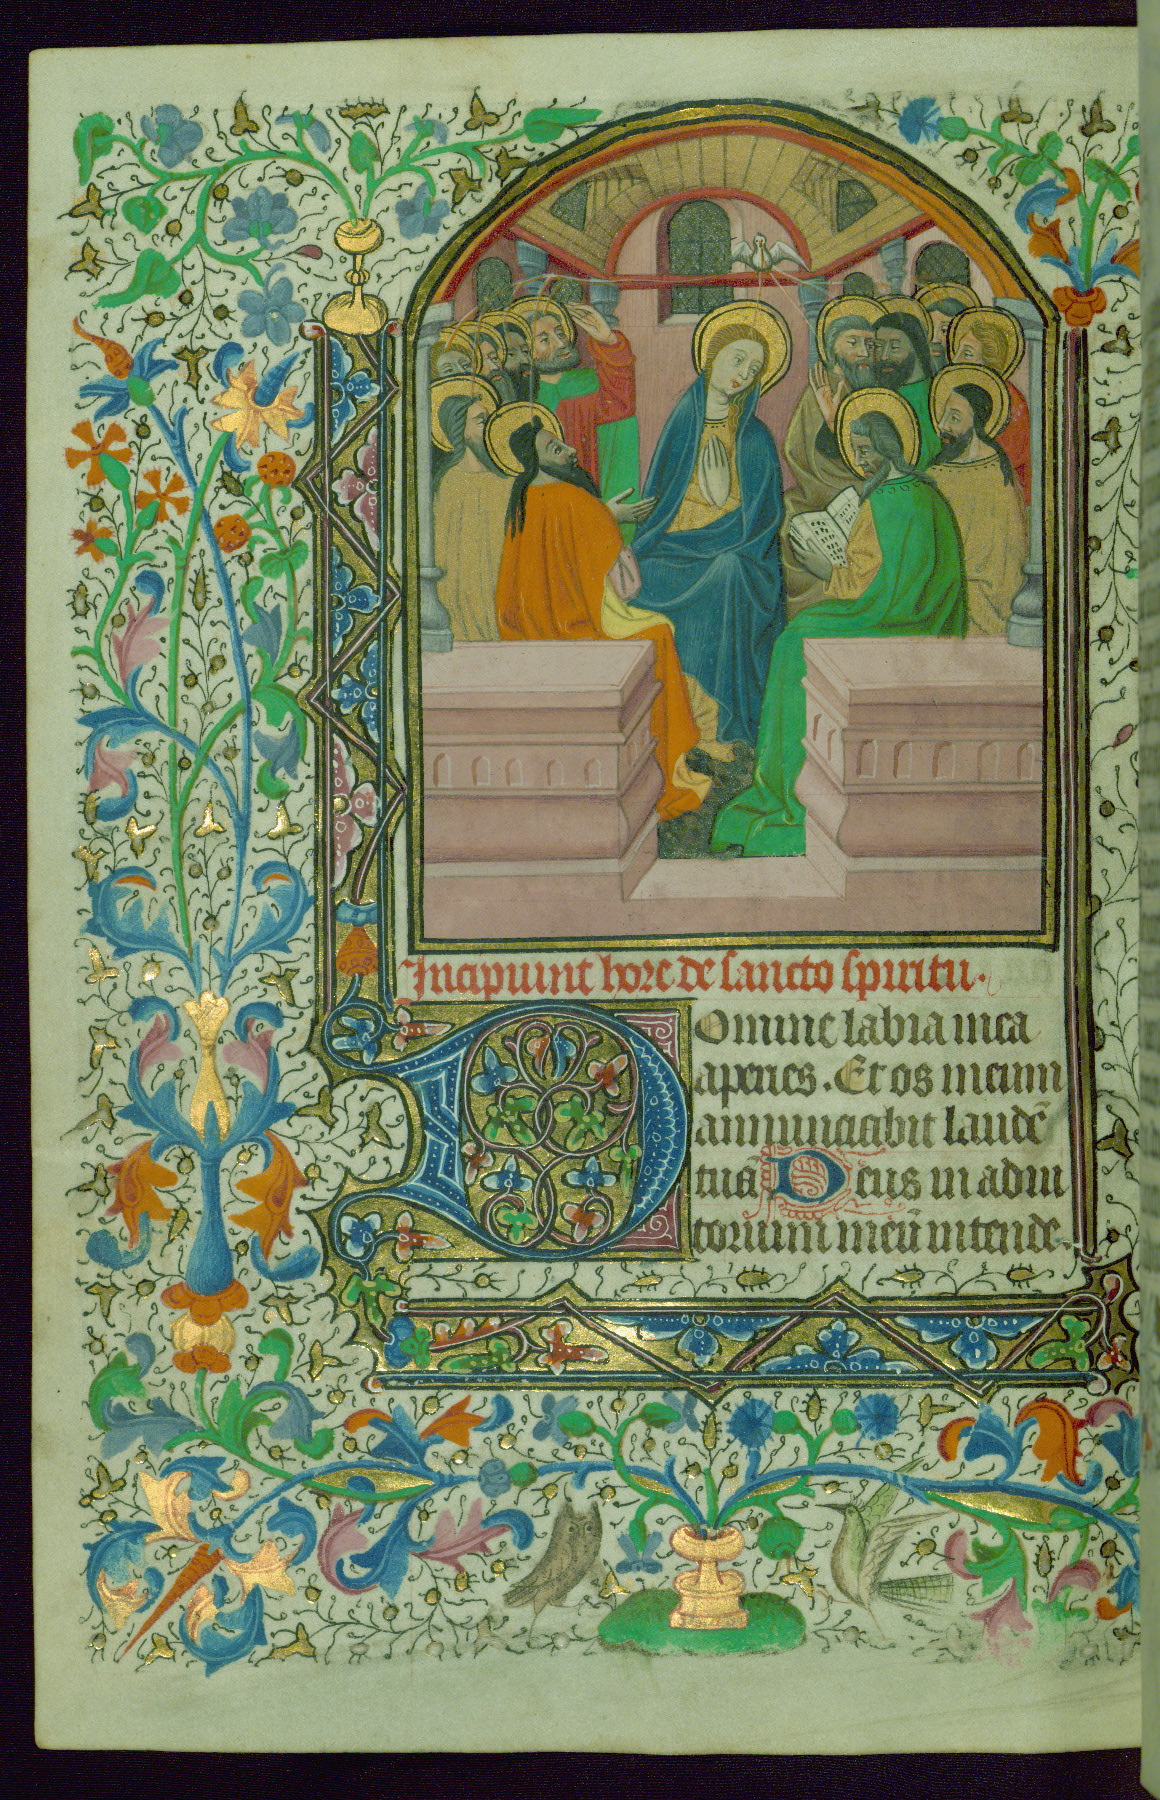 Incipiunt hore de sancto spiritu.
Domine labia mea
aperies. Et os meum
annunciabit laudē
tuā Deus in adiu
torium meū intende